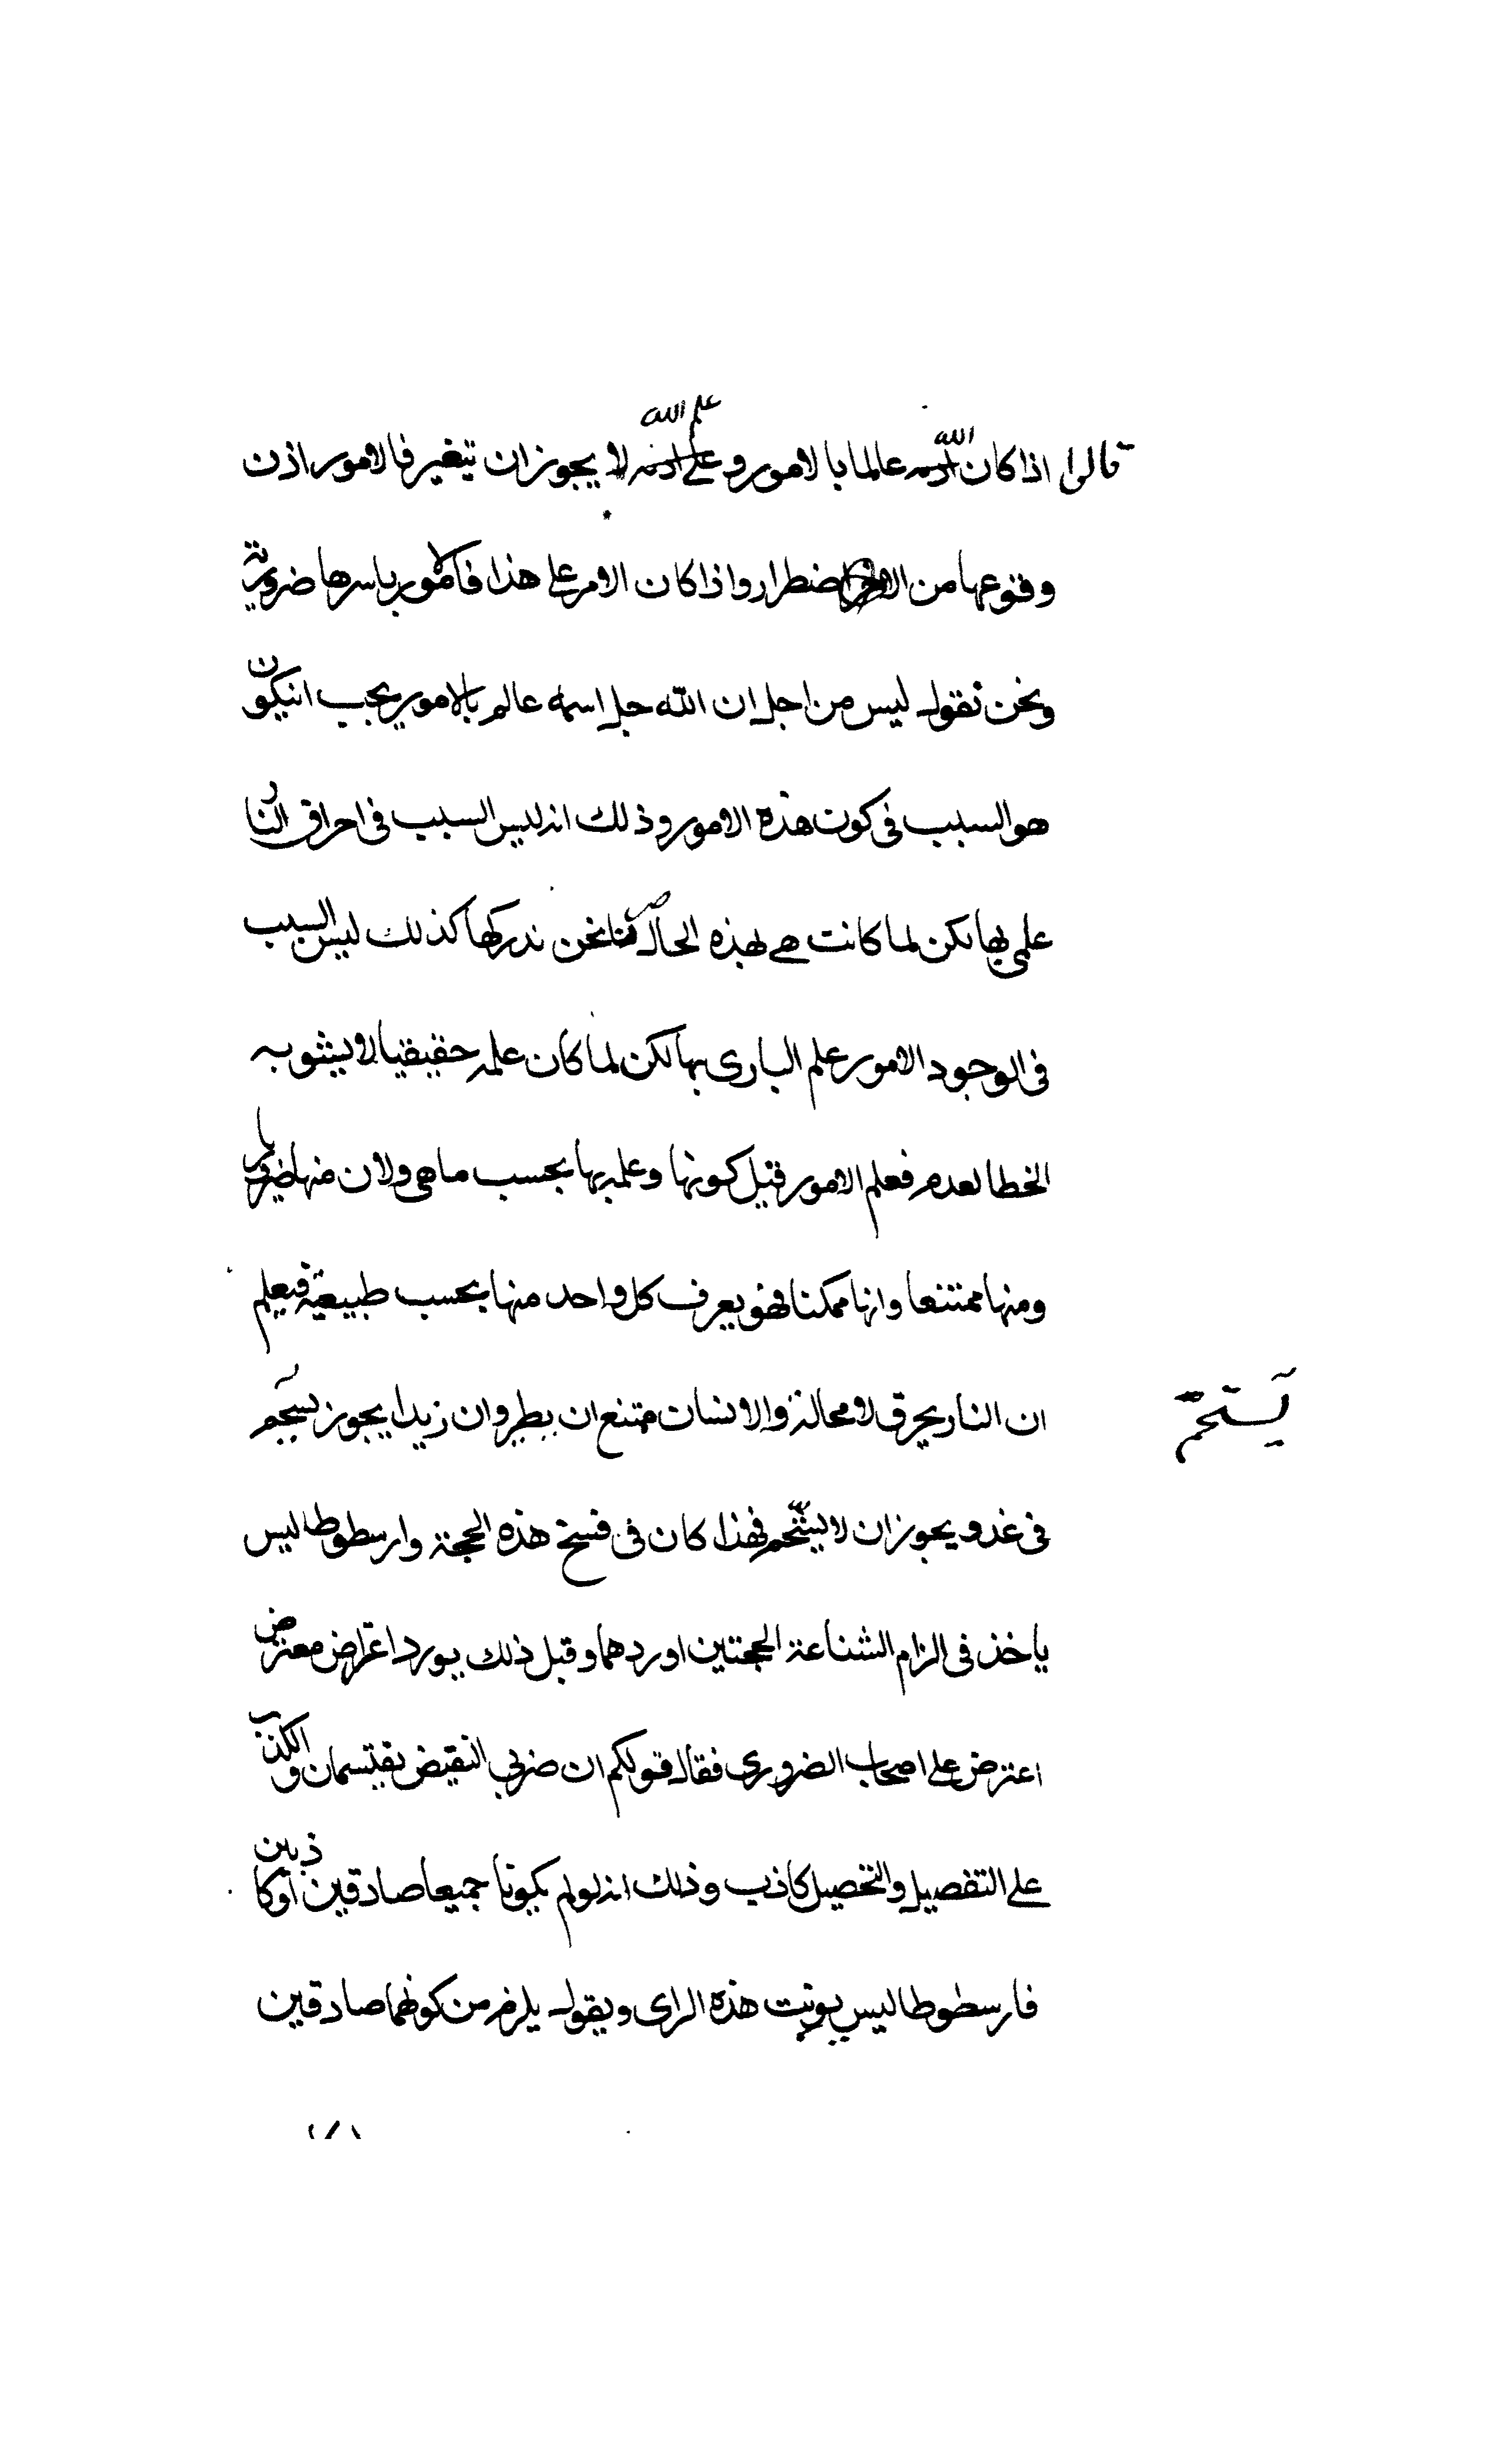 علم الله
الله
قالوا اذا كان الله عالما بالامور وعلم الله لا يجوز ان يتغير فالامور اذن
وقوعها من الاضطرار واذا كان الامر على هذا فالامور باسرها ضرورية
ونحن نقول ليس من اجل ان الله جل اسمه عالم بالامور يجب ان يكون
هو السبب فى كون هذه الامور وذلك انه ليس السبب فى احراق النار
علمى بها لكن لما كانت هى بهذه الحال صرنا نحن ندركها كذلك ليس السبب
فى الوجود الامور علم البارى بها لكن لما كان علمه حقيقيا لا يشوبه
الخطا لعدم فعلم الامور قبل كونها وعلمه بها بحسب ما هى ولان منها ضروريا
ومنها ممتنعا وانها ممكنا فهو يعرف كل واحد منها بحسب طبيعته فيعلم
ان النار يحرق لا محالة والانسان ممتنع ان يطير وان زيدا يجوز يستحم
يستحمّ
فى غد ويجوز ان لا يستحم فهذا كان فى فسخ هذه الحجة وارسطوطاليس
ياخذ فى الزام الشناعة الحجتين اوردهما وقبل ذلك يورد اعتراض معترض
اعترض على اصحاب الضرورى فقال قولكم ان ضربى النقيض يقتسمان والكذب
على التفصيل والتحصيل كاذب وذلك انه لو لم يكونا جميعا صادقين او كاذبين
فارسطوطاليس يونبت هذه الراى ويقول يلزم من كونهما صادقين